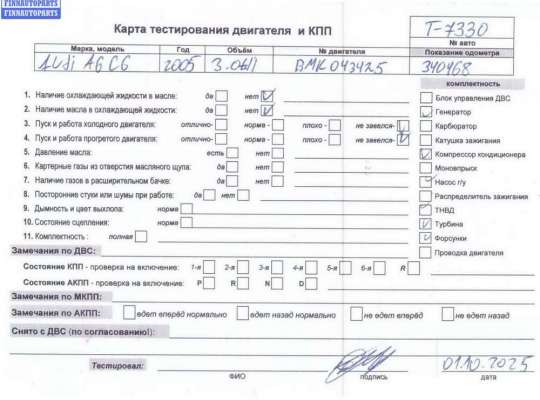 FINNAUTOPARTS
FINNAUTOPARTS
Карта тестирования двигателя и КПП
T-7330
№ авто
Марка, модель Год Объём № двигателя Показание одометра
Audi A6 C6 2005 3.0tdi BMK043425 340468
комплектность
1. Наличие охлаждающей жидкости в масле: да нет
2. Наличие масла в охлаждающей жидкости: да нет
3. Пуск и работа холодного двигателя: отлично- норма - плохо - не завелся-
4. Пуск и работа прогретого двигателя: отлично- норма - плохо - не завелся-
5. Давление масла: есть нет
6. Картерные газы из отверстия масляного щупа: да нет
7. Наличие газов в расширительном бачке: да нет
8. Посторонние стуки или шумы при работе: да нет
9. Дымность и цвет выхлопа: норма
10. Состояние сцепления: норма
11. Комплектность: полная
Блок управления ДВС
Генератор
Карбюратор
Катушка зажигания
Компрессор кондиционера
Моновпрыск
Насос г/у
Распределитель зажигания
ТНВД
Турбина
Форсунки
Проводка двигателя
Замечания по ДВС:
Состояние КПП - проверка на включение: 1-я 2-я 3-я 4-я 5-я 6-я R
Состояние АКПП - проверка на включение: P R N D
Замечания по МКПП:
Замечания по АКПП: едет вперёд нормально едет назад нормально не едет вперёд не едет назад
Снято с ДВС (по согласованию!):
Тестировал: 01.10.2025
ФИО подпись дата